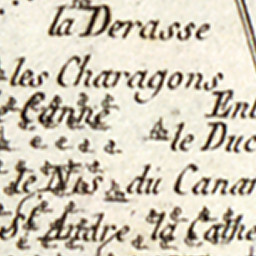 la Derasse
les Charagons
Canne Enl
le Duc
le Nis du Canar
St. André la Cathe